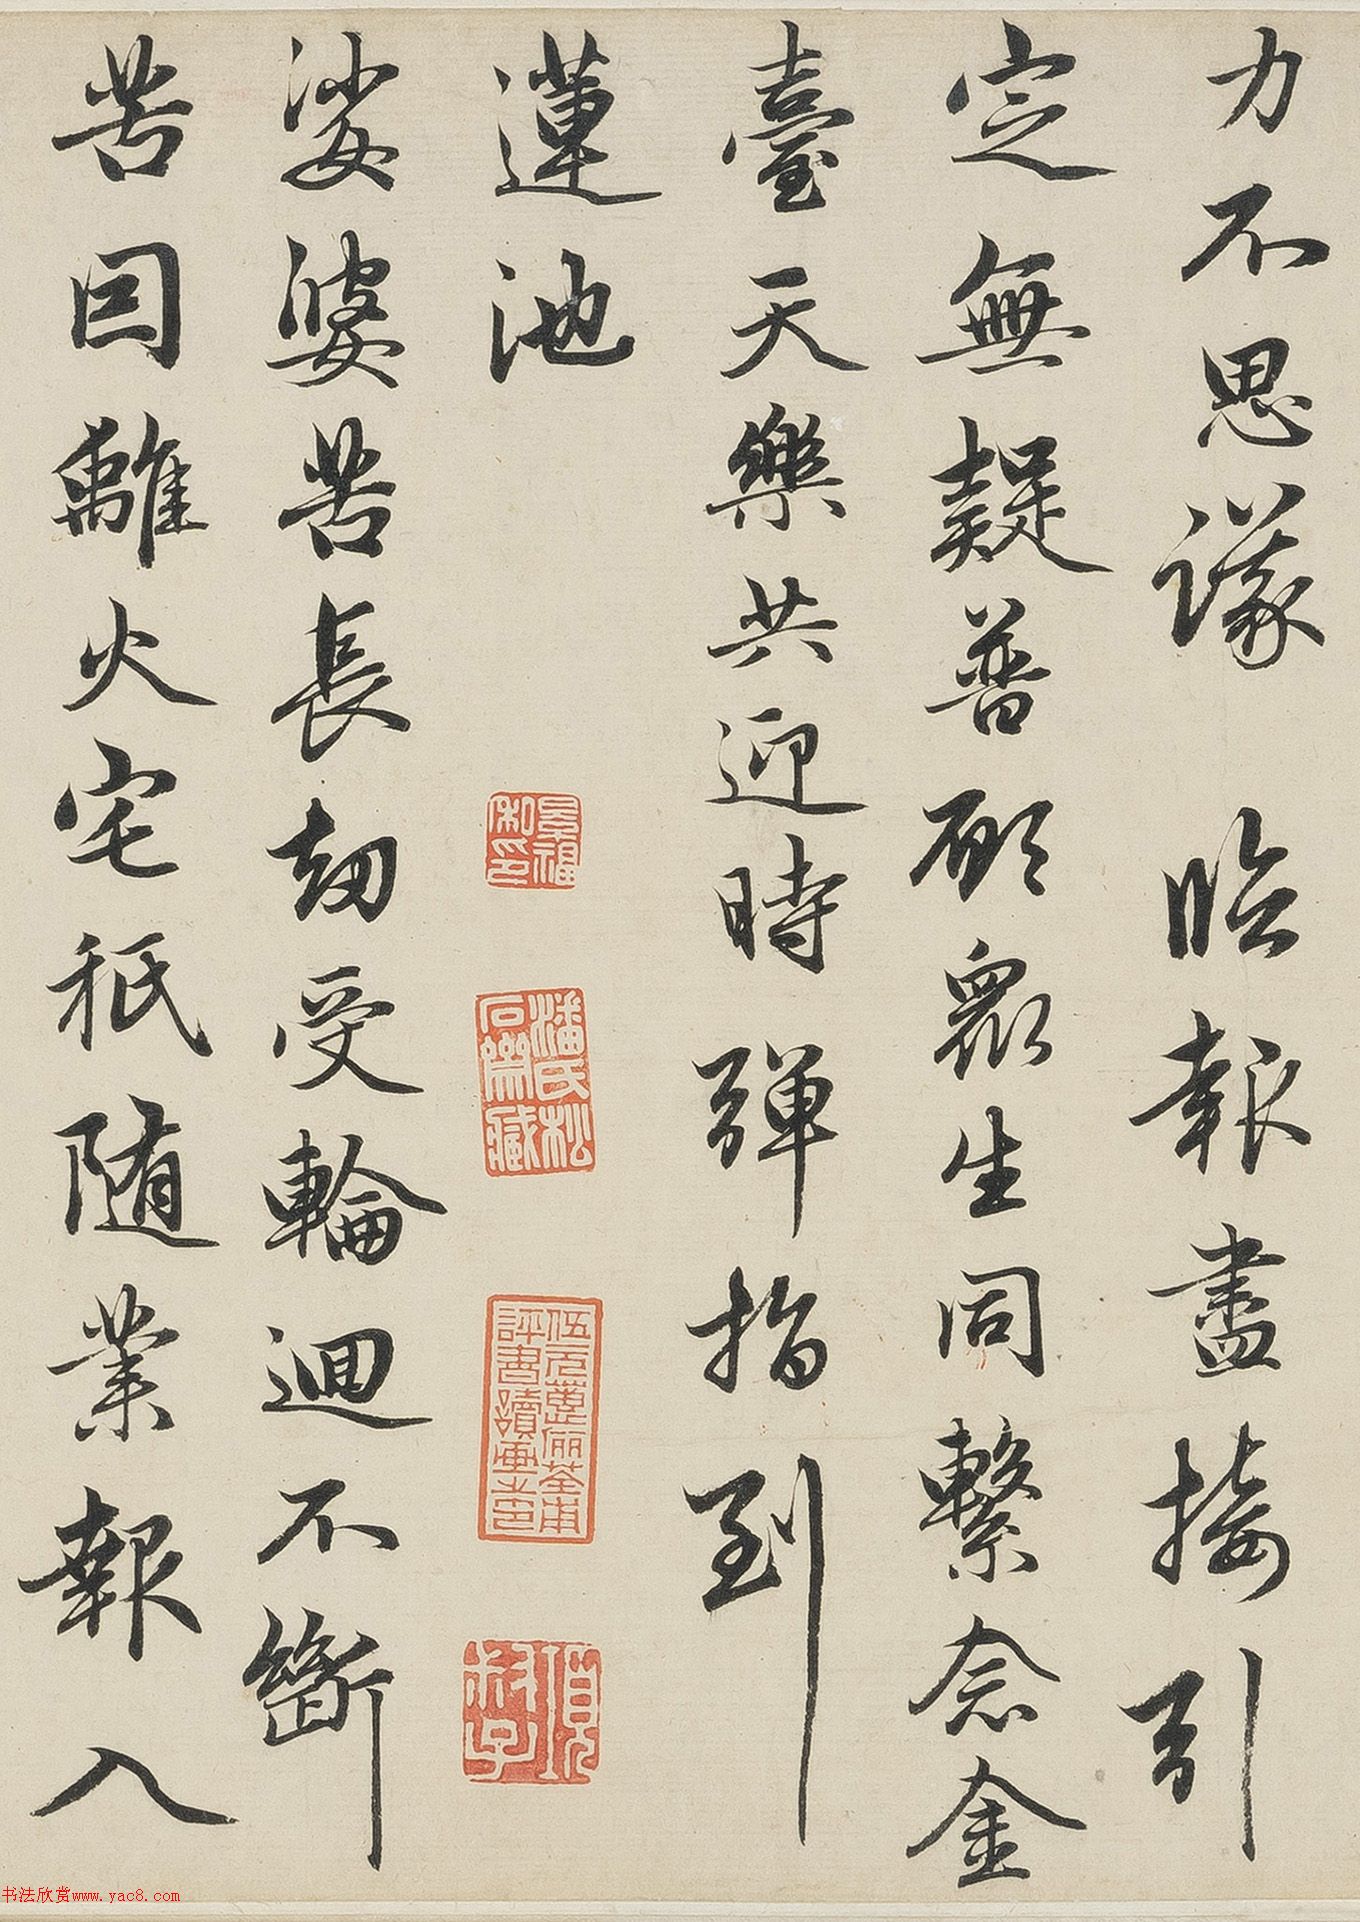 力不思議臨報盡接引
定無疑普願衆生同繫念金
臺天樂共迎時彈指到
蓮池
私印
潘氏松石齋藏
伍元蕙儷荃甫評書讀畫之印
項叔子
娑婆苦長劫受輪迴不斷
苦因離火宅秖随業報入
书法欣赏www.yac8.com